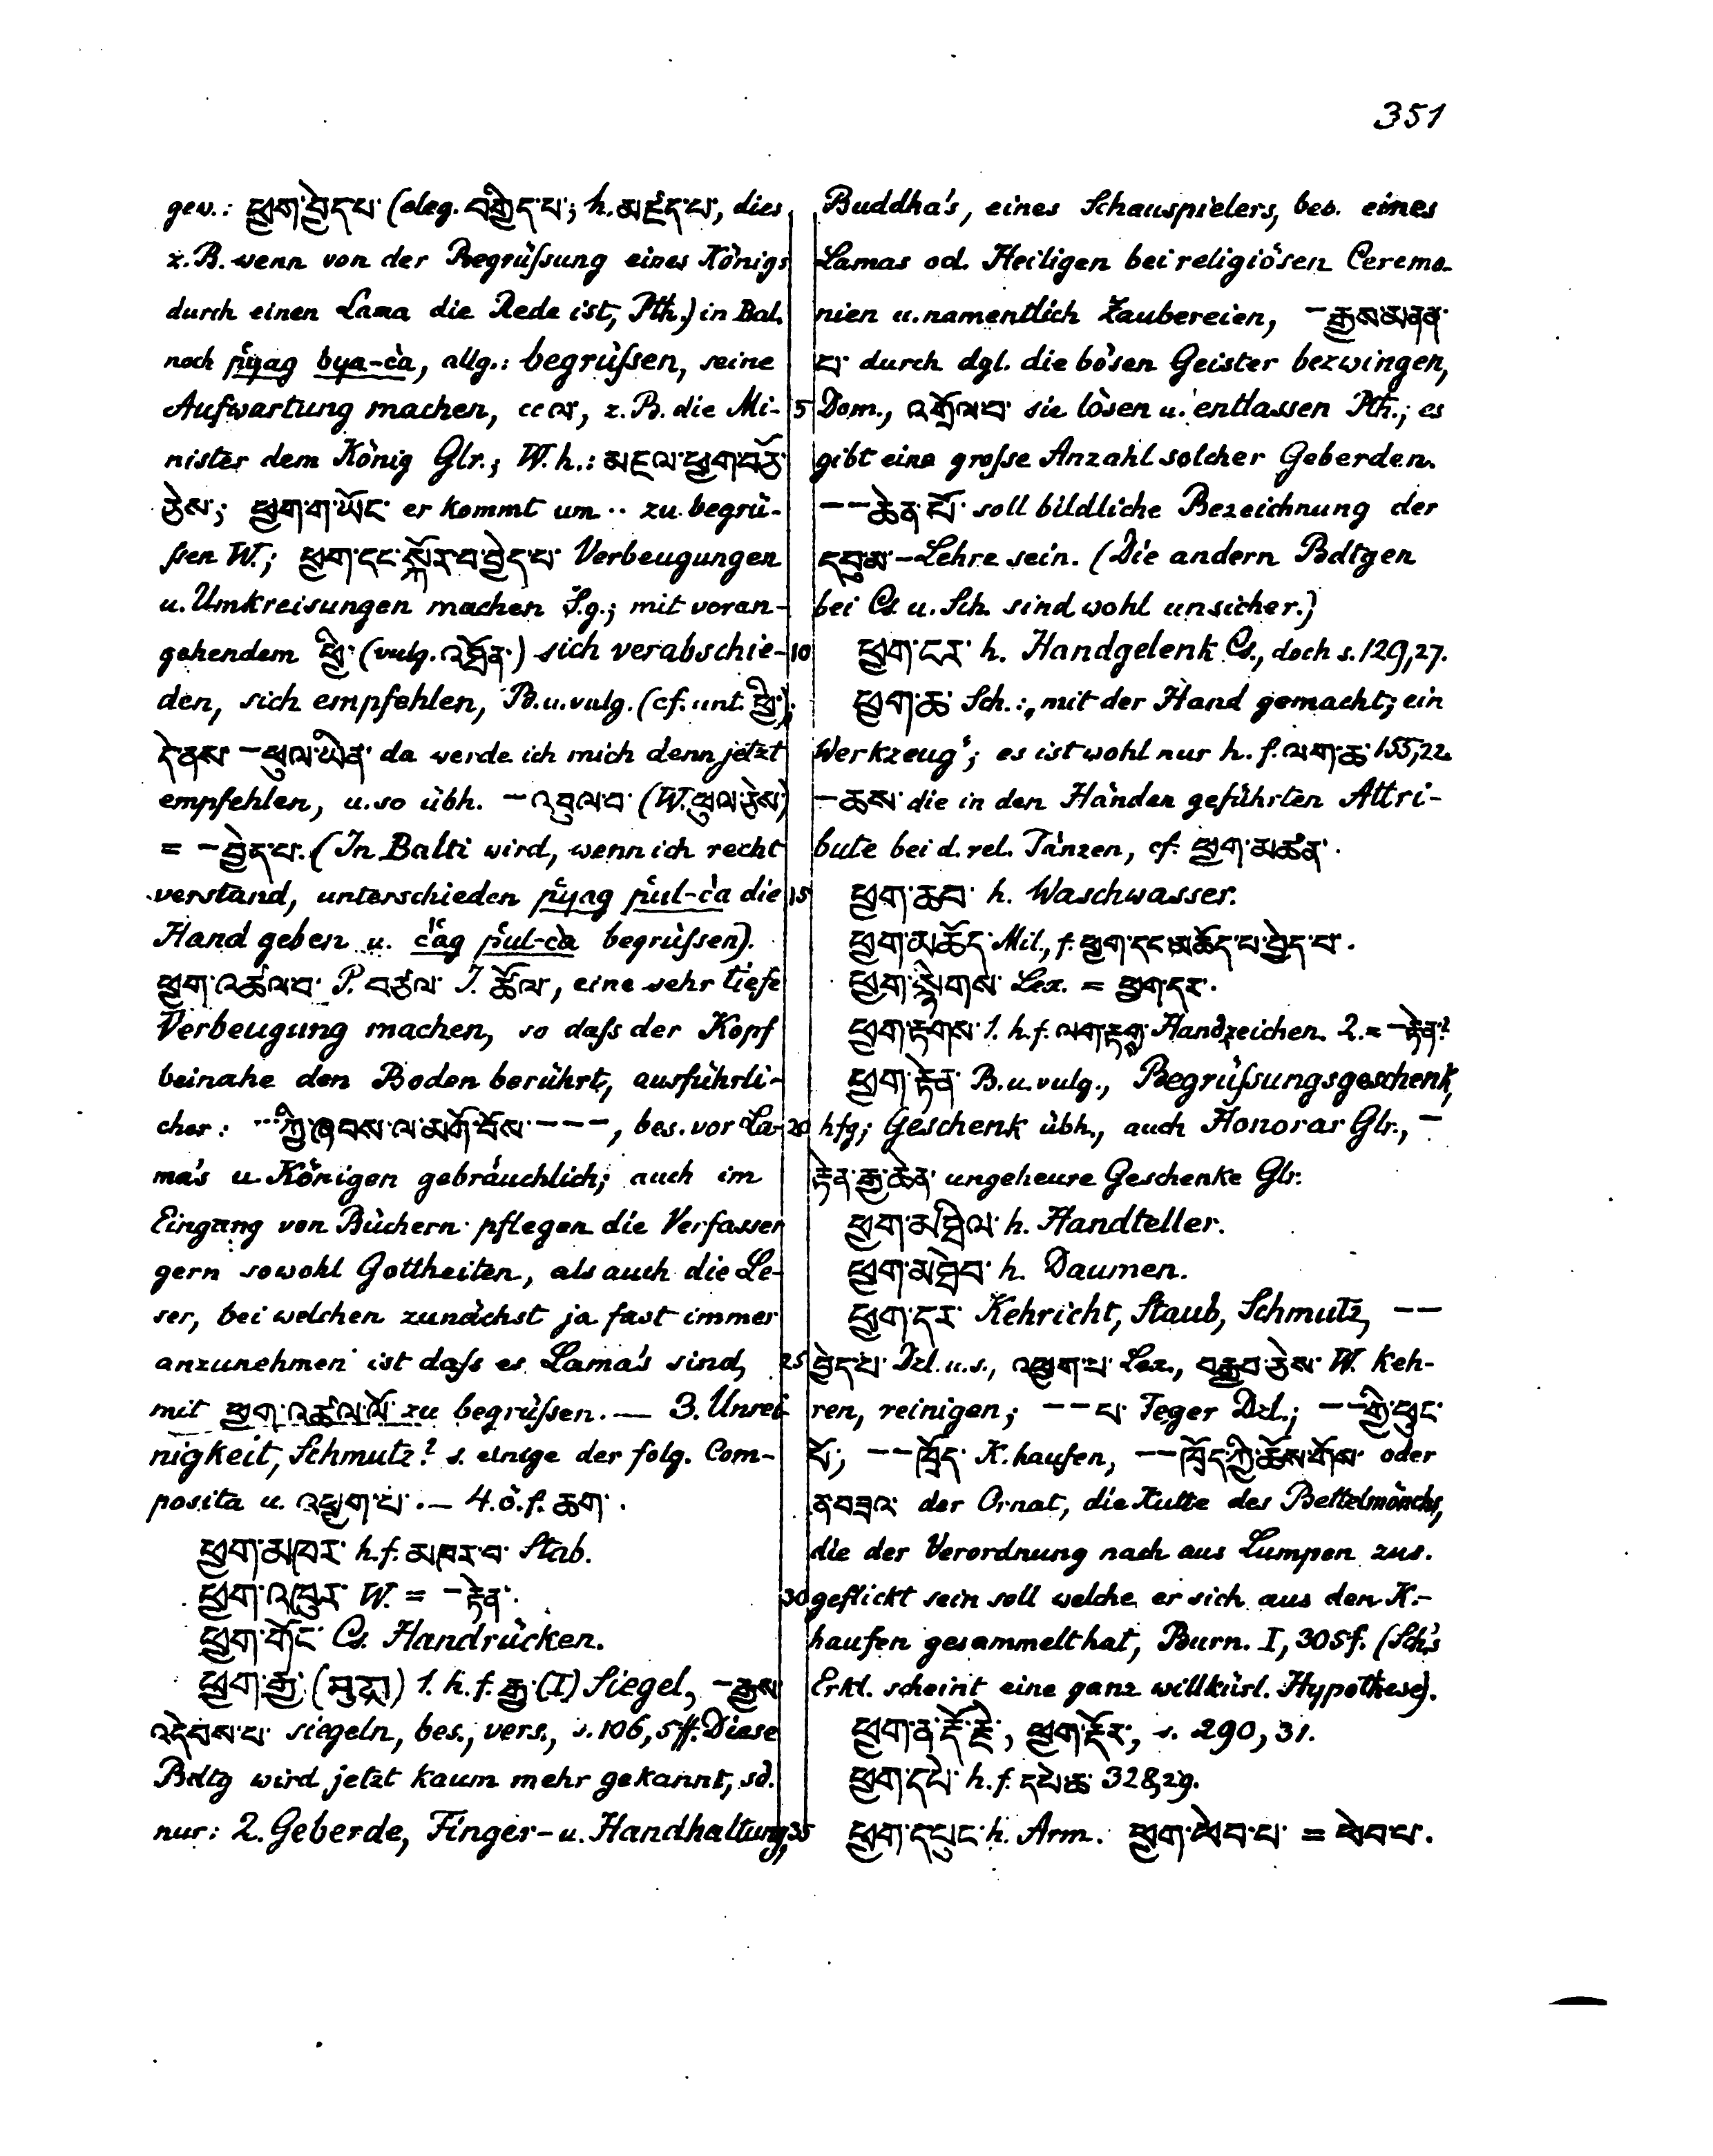 351
gew.: ཕྱག་བྱེད་པ་ (eleg. བགྱིད་པ་; h. མཛད་པ་, dies
z. B. wenn von der Begrüſsung eines Königs
durch einen Lama die Rede ist, Pth.) in Bal.
noch p̔yag bya-c̀a, allg.: begrüſsen, seine
Aufwartung machen, cc ལ་, z. B. die Mi-
nister dem König Glr.; W. h.: མཇལ་ཕྱག་བཙོ་
ཅེས་; ཕྱག་ག་ཡོང་ er kommt um ·· zu begrü-
ſsen W.; ཕྱག་དང་སྐོར་བ་བྱེད་པ་ Verbeugungen
u. Umkreisungen machen S.g.; mit voran-
gehendem ཕྱི་ (vulg. འཐོན་) sich verabschie-
den, sich empfehlen, B. u. vulg. (cf. unt. ཕྱི་);
དེ་ནས་ – ཕུལ་ཡིན་ da werde ich mich denn jetzt
empfehlen, u. so übh. – འབུལ་བ་ (W. ཕུལ་ཅེས་)
= – བྱེད་པ་. (In Balti wird, wenn ich recht
verstand, unterschieden p̔yag p̔ul-c̀a die
Hand geben u. c̔ag p̔ul-c̀a begrüſsen).
ཕྱག་འཚལ་བ་ P. བཙལ་ I. ཚོལ་, eine sehr tiefe
Verbeugung machen, so daſs der Kopf
beinahe den Boden berührt, ausführli-
cher: ··· ཀྱི་ཞབས་ལ་མགོ་བོས་ – – –, bes. vor La-
ma's u. Königen gebräuchlich; auch im
Eingang von Büchern pflegen die Verfasser
gern sowohl Gottheiten, als auch die Le-
ser, bei welchen zunächst ja fast immer
anzunehmen ist daſs es Lama's sind,
mit ཕྱག་འཚལ་ལོ་ zu begrüſsen. — 3. Unrei-
nigkeit, Schmutz? s. einige der folg. Com-
posita u. འཕྱག་པ་. — 4. ö. f. ཆག་.
ཕྱག་མཁར་ h. f. མཁར་བ་ Stab.
ཕྱག་འཁུར་ W. = – རྟེན་.
ཕྱག་གོང་ Cs. Handrücken.
ཕྱག་རྒྱ་ (मुद्रा) 1. h. f. རྒྱ་ (I) Siegel, – རྒྱས་
འདེབས་པ་ siegeln, bes., vers., s. 106, 5 ff. Diese
Bdtg wird jetzt kaum mehr gekannt, sd.
nur: 2. Geberde, Finger- u. Handhaltung,
Buddha's, eines Schauspielers, bes. eines
Lamas od. Heiligen bei religiösen Ceremo-
nien u. namentlich Zaubereien, – རྒྱས་མནན་
པ་ durch dgl. die bösen Geister bezwingen,
5 Dom., འགྲོལ་བ་ sie lösen u. entlassen Pth.; es
gibt eine groſse Anzahl solcher Geberden.
– – ཆེན་པོ་ soll bildliche Bezeichnung der
དབུ་མ་ – Lehre sein. (Die andern Bdtgen
bei Cs. u. Sch. sind wohl unsicher.)
10 ཕྱག་ངར་ h. Handgelenk Cs., doch s. 129, 27.
ཕྱག་ཆ་ Sch.: „mit der Hand gemacht; ein
Werkzeug“; es ist wohl nur h. f. ལག་ཆ་ 155, 22.
– ཆས་ die in den Händen geführten Attri-
bute bei d. rel. Tänzen, cf. ཕྱག་མཚན་.
15 ཕྱག་ཆབ་ h. Waschwasser.
ཕྱག་མཆོད་ Mil., f. ཕྱག་དང་མཆོད་པ་བྱེད་པ་.
ཕྱག་སྙིགས་ Lex. = ཕྱག་དར་.
ཕྱག་རྟགས་ 1. h. f. ལག་རྟགས་ Handzeichen. 2. = – རྟེན་?
ཕྱག་རྟེན་ B. u. vulg., Begrüſsungsgeschenk,
20 hfg; Geschenk übh., auch Honorar Glr., –
རྟེན་རྒྱ་ཆེན་ ungeheure Geschenke Glr.
ཕྱག་མཐིལ་ h. Handteller.
ཕྱག་མཐེབ་ h. Daumen.
ཕྱག་དར་ Kehricht, Staub, Schmutz, – –
25 བྱེད་པ་ Dzl. u. s., འཕྱག་པ་ Lex., བརྒྱབ་ཅེས་ W. keh-
ren, reinigen; – – པ་ Feger Dzl.; – – གྱི་ཕུང་
པོ་, – – ཁྲོད་ K. haufen, – – ཁྲོད་ཀྱི་ཆོས་གོས་ oder
ན་བཟའ་ der Ornat, die Kutte des Bettelmönchs,
die der Verordnung nach aus Lumpen zus.
30 geflickt sein soll welche er sich aus den K.-
haufen gesammelt hat, Burn. I, 305 f. (Sch's
Erkl. scheint eine ganz willkürl. Hypothese).
ཕྱག་ན་རྡོ་རྗེ་, ཕྱག་རྡོར་, s. 290, 31.
ཕྱག་དཔེ་ h. f. དཔེ་ཆ་ 328, 29.
35 ཕྱག་དཔུང་ h. Arm. ཕྱག་ཕེབ་པ་ = ཕེབ་པ་.